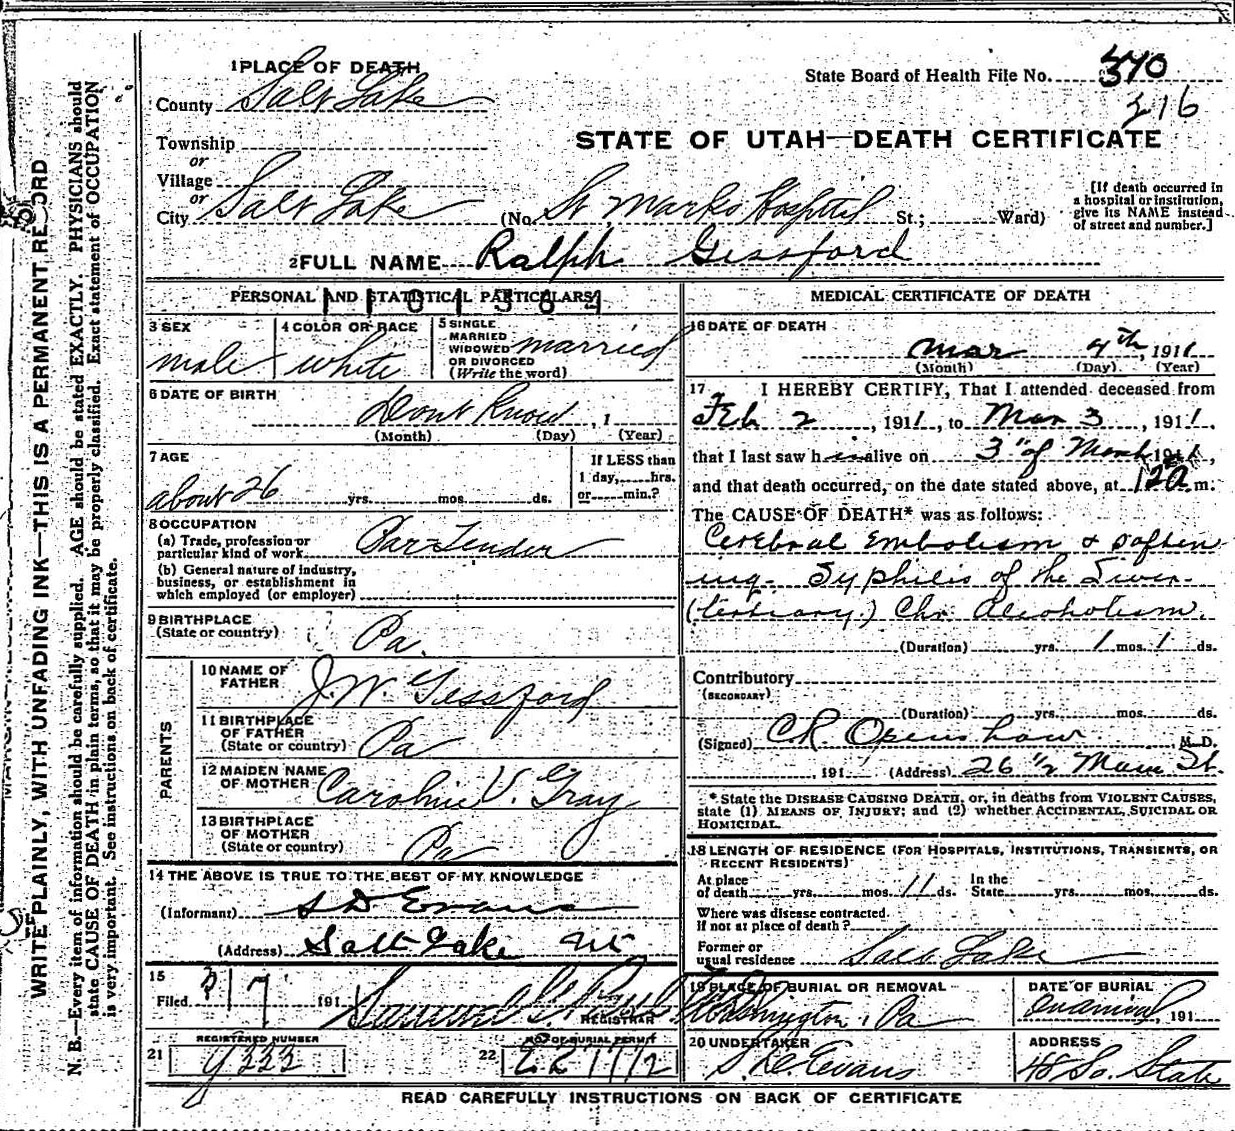 1 PLACE OF DEATH
County Salt Lake
Township
or
Village
or
City Salt Lake (No. St Marks Hospital St.; Ward)
2 FULL NAME Ralph Gessford
State Board of Health File No. 370
216
STATE OF UTAH—DEATH CERTIFICATE
[If death occurred in
a hospital or institution,
give its NAME instead
of street and number.]
PERSONAL AND STATISTICAL PARTICULARS
1101364
3 SEX
male
4 COLOR OR RACE
white
5 SINGLE
MARRIED
WIDOWED
OR DIVORCED
(Write the word)
married
6 DATE OF BIRTH
Dont Know, 1
(Month) (Day) (Year)
7 AGE
about 26 yrs. mos. ds.
If LESS than
1 day, hrs.
or min.?
8 OCCUPATION
(a) Trade, profession or
particular kind of work Bar Tender
(b) General nature of industry,
business, or establishment in
which employed (or employer)
9 BIRTHPLACE
(State or country) Pa.
PARENTS
10 NAME OF
FATHER J. W. Gessford
11 BIRTHPLACE
OF FATHER
(State or country) Pa
12 MAIDEN NAME
OF MOTHER Caroline V. Gray
13 BIRTHPLACE
OF MOTHER
(State or country) Pa
14 THE ABOVE IS TRUE TO THE BEST OF MY KNOWLEDGE
(Informant) S D Evans
(Address) Salt Lake Ut
15
Filed 3/7 191 Samuel G. Paul
REGISTRAR
21 REGISTERED NUMBER
22 NO. OF BURIAL PERMIT
MEDICAL CERTIFICATE OF DEATH
16 DATE OF DEATH
Mar 4th, 1911
(Month) (Day) (Year)
17 I HEREBY CERTIFY, That I attended deceased from
Feb 2, 1911, to Mar 3, 1911,
that I last saw him alive on 3" of March 1911,
and that death occurred, on the date stated above, at 12 a m.
The CAUSE OF DEATH* was as follows:
Cerebral Embolism & soften
ing. Syphilis of the Liver
(tertiary.) Chr. Alcoholism.
(Duration) yrs. 1 mos. 1 ds.
Contributory
(SECONDARY)
(Duration) yrs. mos. ds.
(Signed) C R Openshaw, M.D.
191 (Address) 26 1/2 Main St.
*State the DISEASE CAUSING DEATH, or, in deaths from VIOLENT CAUSES,
state (1) MEANS OF INJURY; and (2) whether ACCIDENTAL, SUICIDAL OR
HOMICIDAL.
18 LENGTH OF RESIDENCE (FOR HOSPITALS, INSTITUTIONS, TRANSIENTS, OR
RECENT RESIDENTS)
At place In the
of death yrs. mos. 11 ds. State yrs. mos. ds.
Where was disease contracted
if not at place of death?
Former or
usual residence Salt Lake
19 PLACE OF BURIAL OR REMOVAL
Washington, Pa
DATE OF BURIAL
191
20 UNDERTAKER
S. D. Evans
ADDRESS
48 So. State
READ CAREFULLY INSTRUCTIONS ON BACK OF CERTIFICATE
WRITE PLAINLY, WITH UNFADING INK—THIS IS A PERMANENT RECORD
N. B.—Every item of information should be carefully supplied. AGE should be stated EXACTLY. PHYSICIANS should
state CAUSE OF DEATH in plain terms, so that it may be properly classified. Exact statement of OCCUPATION
is very important. See instructions on back of certificate.